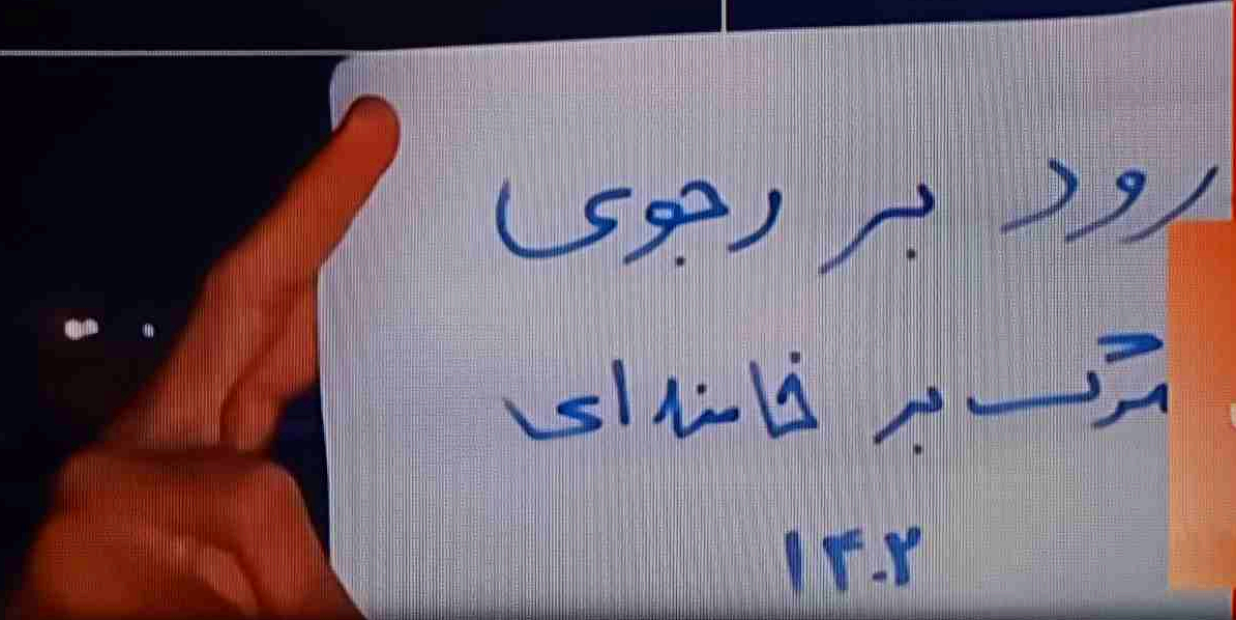 رود بر رجوی
مرگ بر خامنه‌ای
۱۴۰۲